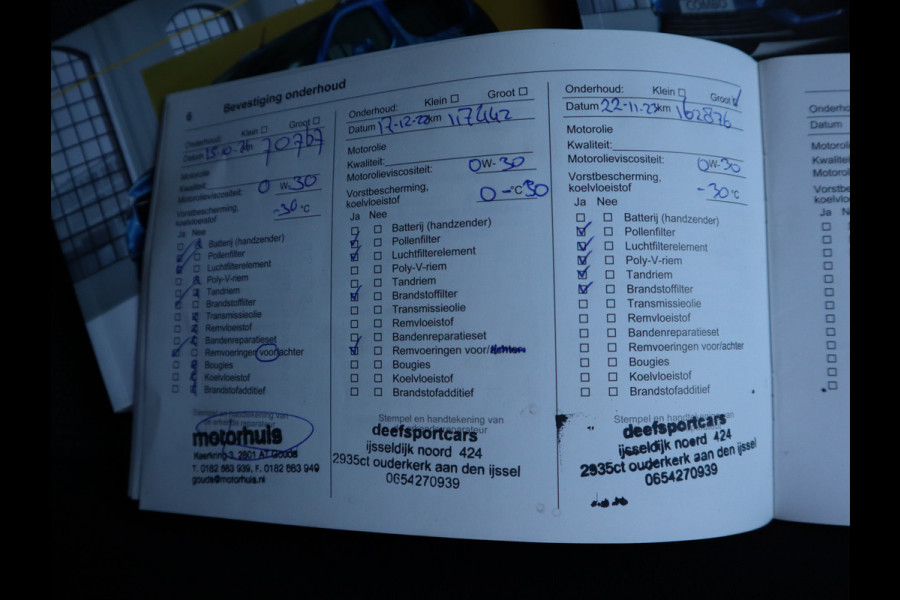 COMBO
6 Bevestiging onderhoud
Onderhoud: Klein Groot
Datum 70767
Motorolie
Kwaliteit:
Motorolieviscositeit: 0 W- 30
Vorstbescherming,
koelvloeistof -30 °C
Ja Nee
Batterij (handzender)
Pollenfilter
Luchtfilterelement
Poly-V-riem
Tandriem
Brandstoffilter
Transmissieolie
Remvloeistof
Bandenreparatieset
Remvoeringen voor/achter
Bougies
Koelvloeistof
Brandstofadditief
Stempel en handtekening van
motorhuis
T. 0182 663 939, F. 0182 663 949
gouda@motorhuis.nl
Onderhoud: Klein Groot
Datum 17-12-22 km 117442
Motorolie
Kwaliteit:
Motorolieviscositeit: 0W-30
Vorstbescherming,
koelvloeistof 0 -°C 30
Ja Nee
Batterij (handzender)
Pollenfilter
Luchtfilterelement
Poly-V-riem
Tandriem
Brandstoffilter
Transmissieolie
Remvloeistof
Bandenreparatieset
Remvoeringen voor/
Bougies
Koelvloeistof
Brandstofadditief
Stempel en handtekening van
deefsportcars
ijsseldijk noord 424
2935ct ouderkerk aan den ijssel
0654270939
Onderhoud: Klein Groot
Datum 22-11-23 km 162876
Motorolie
Kwaliteit:
Motorolieviscositeit: 0W-30
Vorstbescherming,
koelvloeistof -30 °C
Ja Nee
Batterij (handzender)
Pollenfilter
Luchtfilterelement
Poly-V-riem
Tandriem
Brandstoffilter
Transmissieolie
Remvloeistof
Bandenreparatieset
Remvoeringen voor/achter
Bougies
Koelvloeistof
Brandstofadditief
Stempel en handtekening van
deefsportcars
ijsseldijk noord 424
2935ct ouderkerk aan den ijssel
0654270939
Datum
Ja